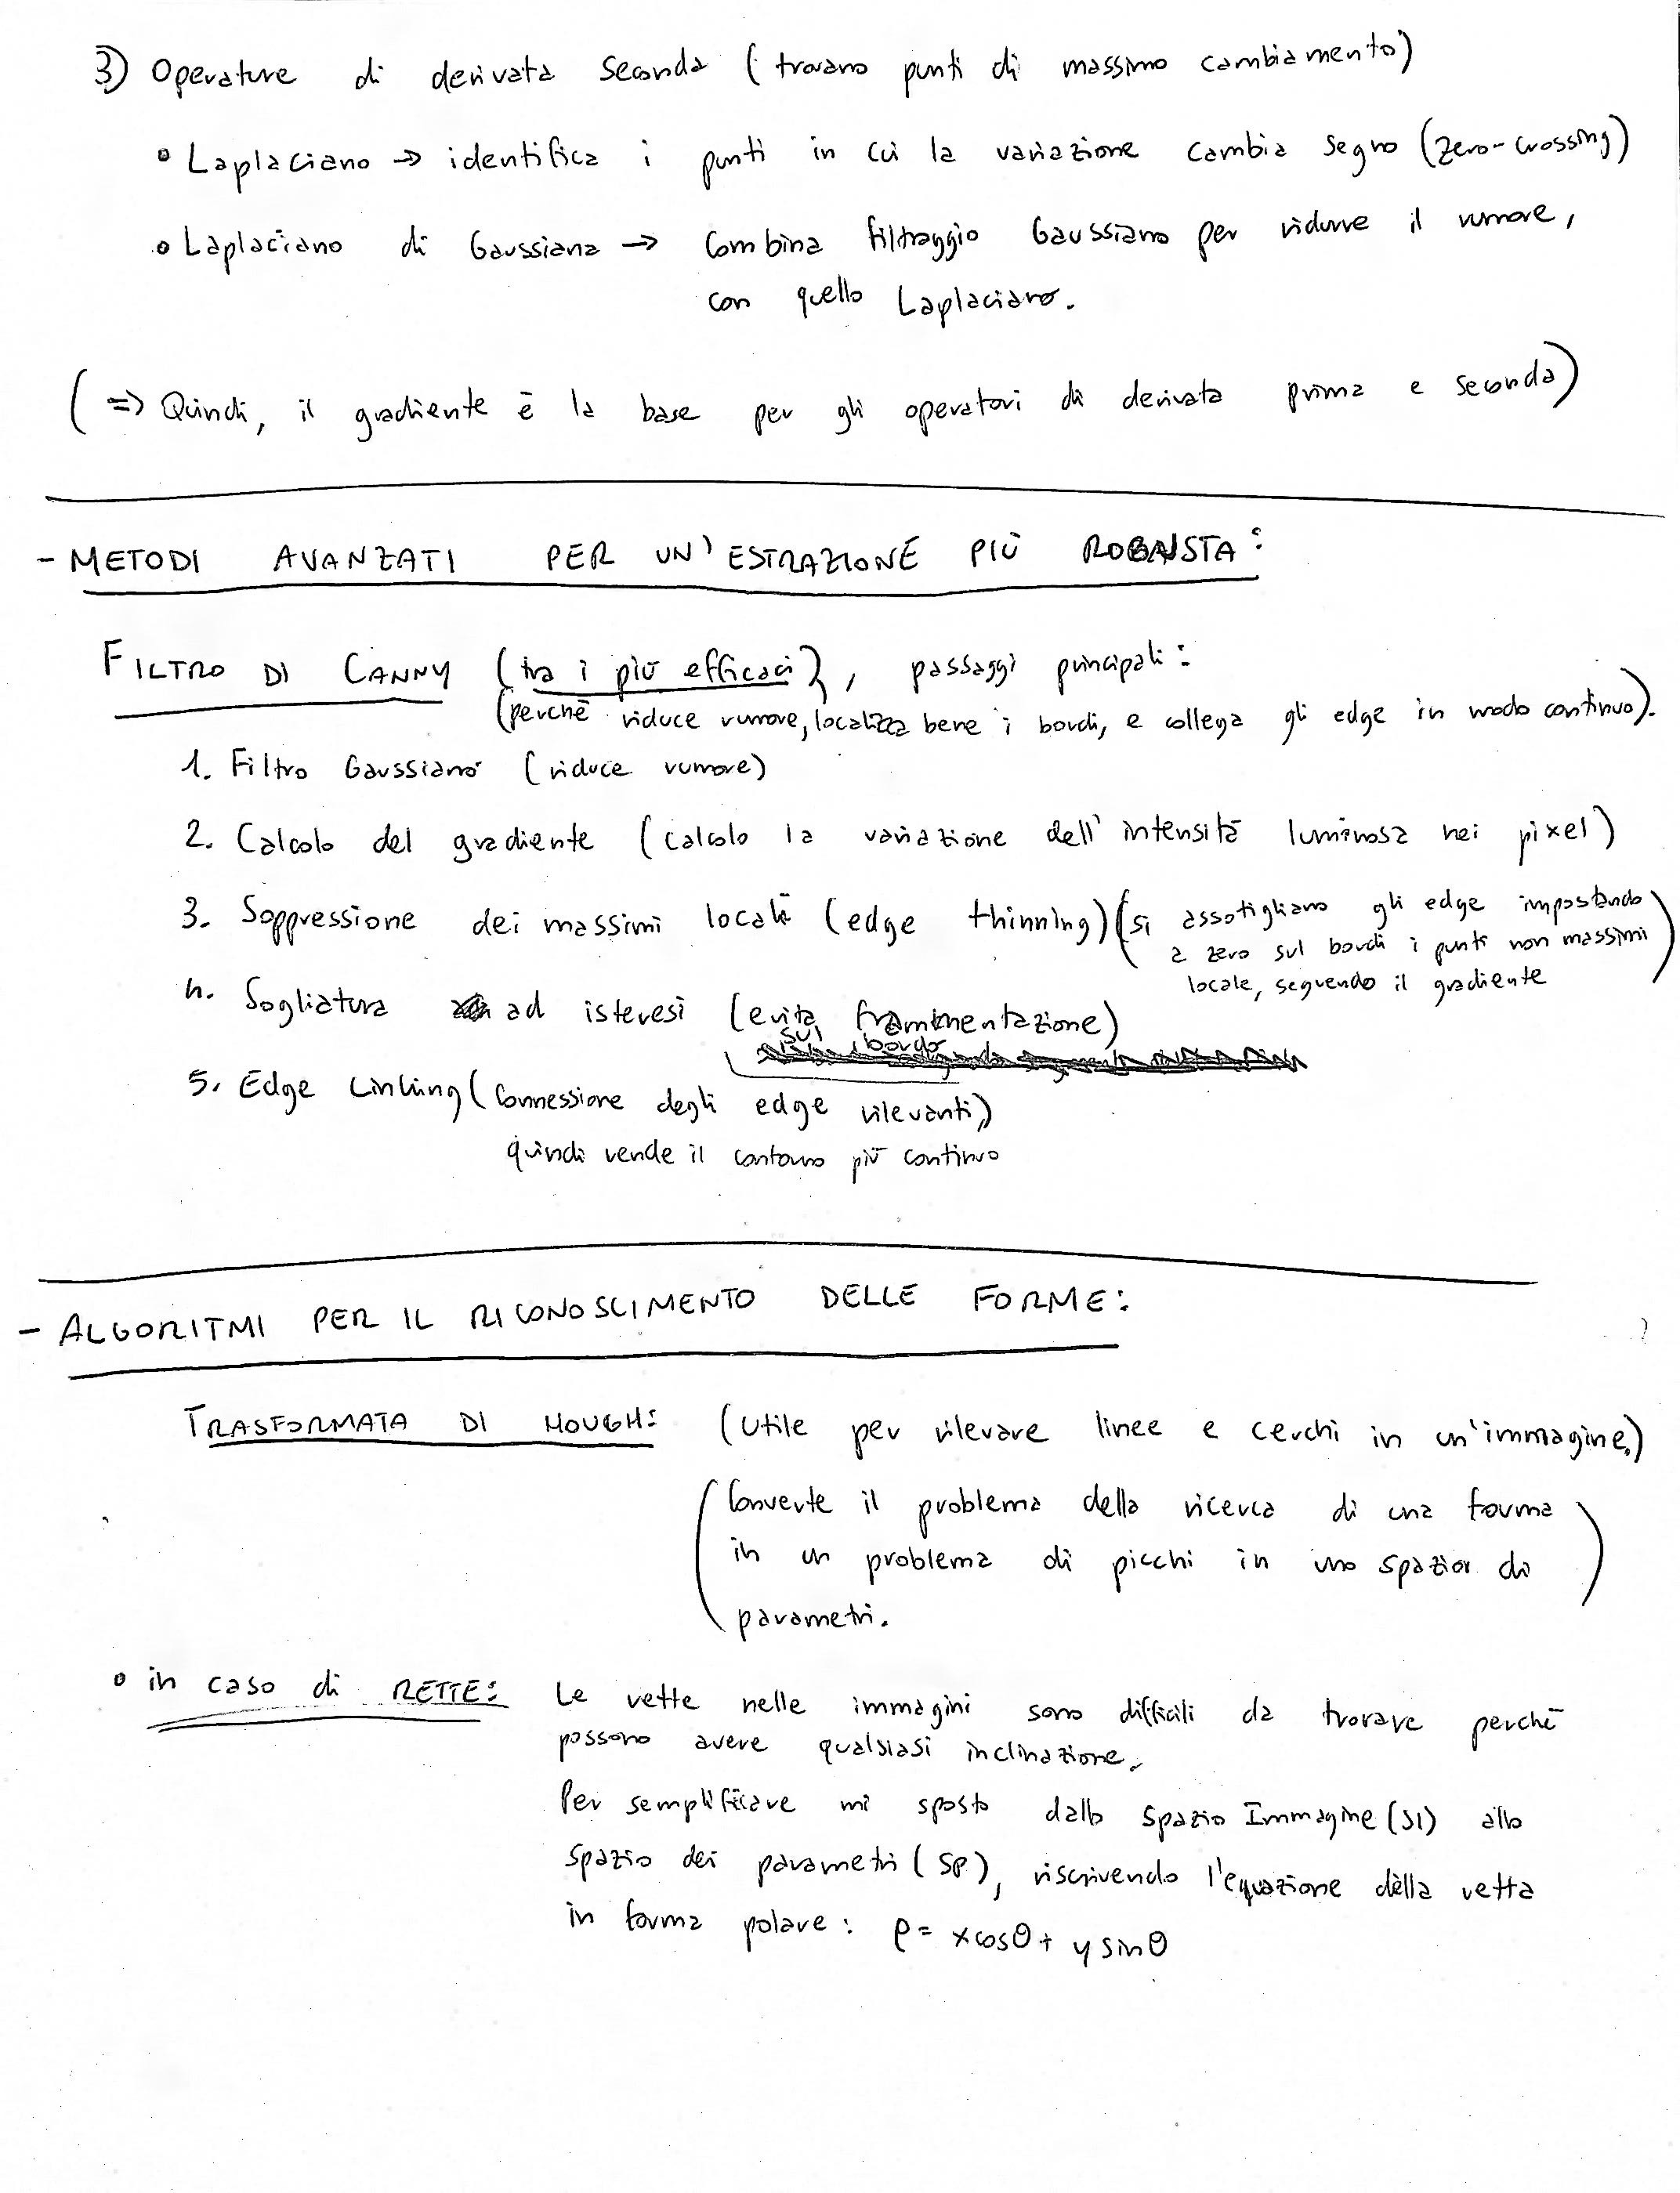 3) Operatore di derivata seconda (trovano punti di massimo cambiamento)
• Laplaciano → identifica i punti in cui la variazione cambia segno (zero-crossing)
• Laplaciano di Gaussiana → Combina filtraggio Gaussiano per ridurre il rumore,
con quello Laplaciano.
(=> Quindi, il gradiente è la base per gli operatori di derivata prima e seconda)
- METODI AVANZATI PER UN'ESTRAZIONE PIÙ ROBUSTA:
FILTRO DI CANNY (tra i più efficaci), passaggi principali:
(perchè riduce rumore, localizza bene i bordi, e collega gli edge in modo continuo).
1. Filtro Gaussiano (riduce rumore)
2. Calcolo del gradiente (calcolo la variazione dell'intensità luminosa nei pixel)
3. Soppressione dei massimi locali (edge thinning) (si assotigliano gli edge impostando
a zero sul bordi i punti non massimi
locale, seguendo il gradiente)
4. Sogliatura ad isteresi (evita frammentazione)
sul bordo
5. Edge Linking (Connessione degli edge rilevanti)
quindi rende il contorno più continuo
- ALGORITMI PER IL RICONOSCIMENTO DELLE FORME:
TRASFORMATA DI HOUGH: (Utile per rilevare linee e cerchi in un'immagine.)
(Converte il problema della ricerca di una forma
in un problema di picchi in uno spazio di
parametri.)
• in caso di RETTE: Le rette nelle immagini sono difficili da trovare perchè
possono avere qualsiasi inclinazione.
Per semplificare mi sposto dallo Spazio Immagine (SI) allo
Spazio dei parametri (SP), riscrivendo l'equazione della retta
in forma polare: ρ = x cosθ + y sinθ